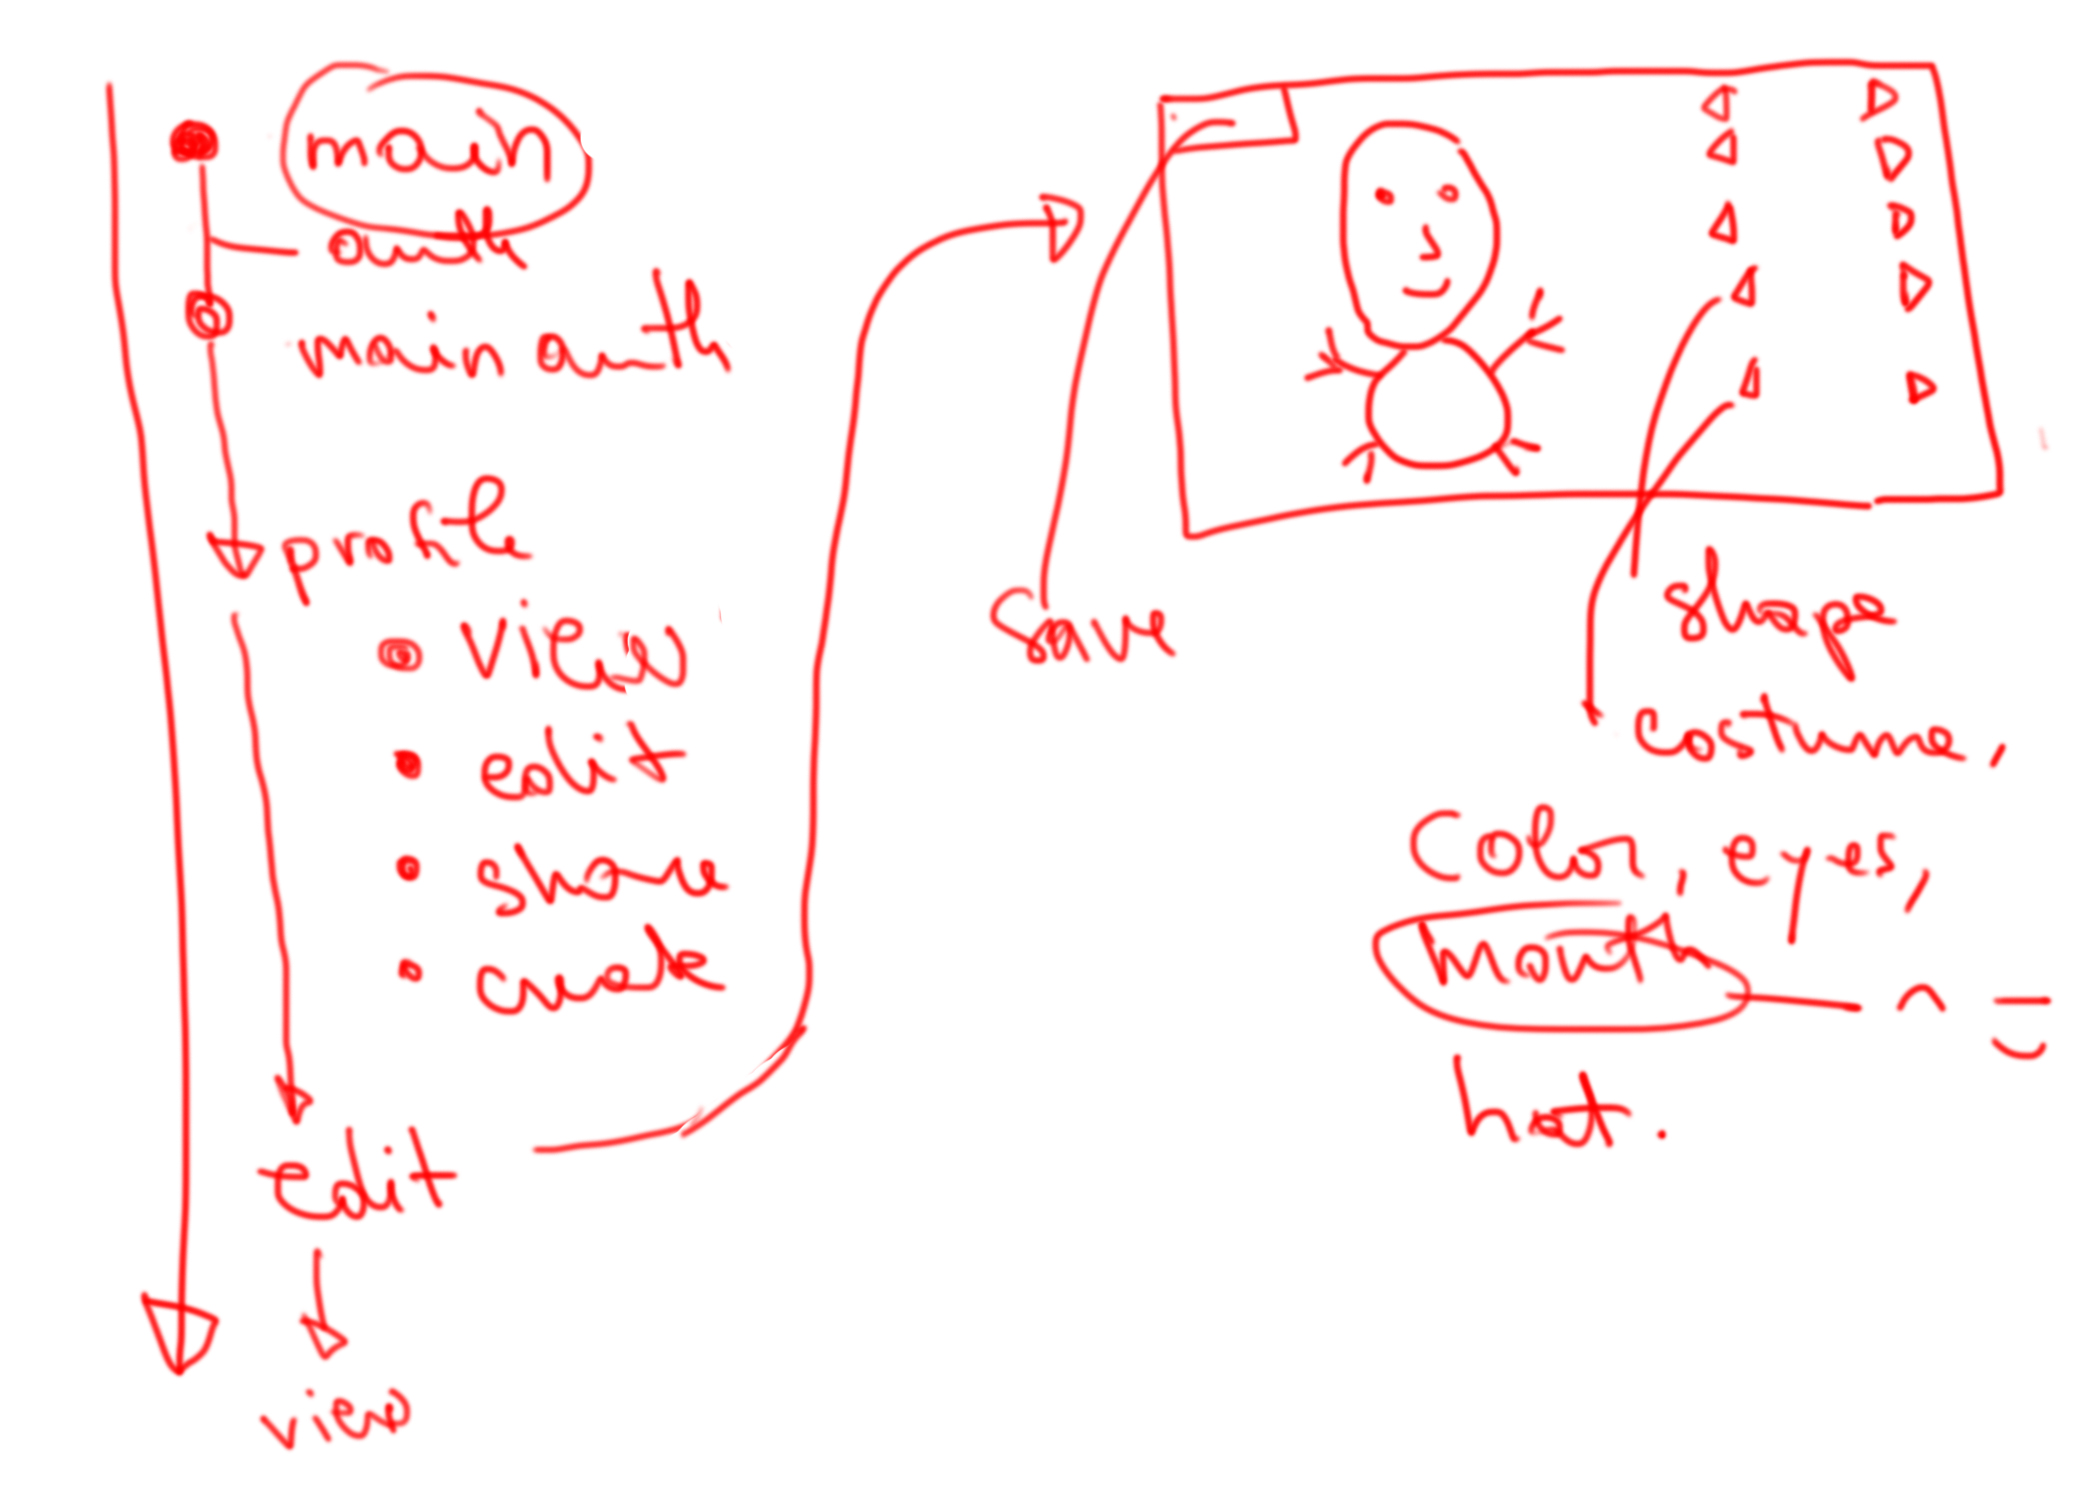 main
auth
main auth
profile
view
edit
share
create
edit
view
save
shape
costume,
color, eyes,
mouth
hat.